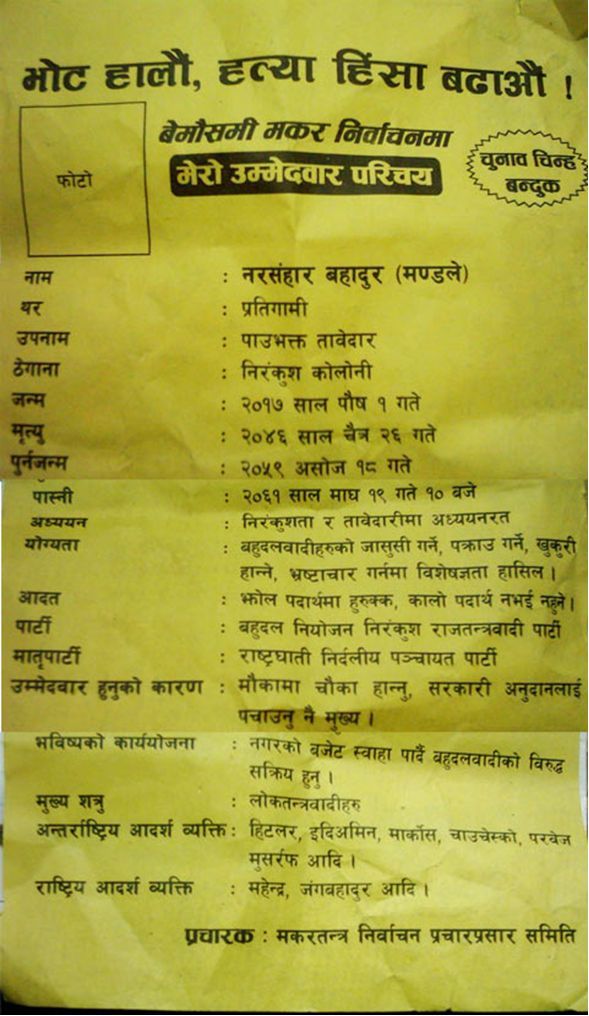 भोट हालौं, हत्या हिंसा बढाऔं !
बेमौसमी मकर निर्वाचनमा
मेरो उम्मेदवार परिचय
चुनाव चिन्ह
बन्दुक
फोटो
नाम : नरसंहार बहादुर (मण्डले)
थर : प्रतिगामी
उपनाम : पाउभक्त तावेदार
ठेगाना : निरंकुश कोलोनी
जन्म : २०१७ साल पौष १ गते
मृत्यु : २०४६ साल चैत्र २६ गते
पुर्नजन्म : २०५९ असोज १८ गते
पास्नी : २०६१ साल माघ १९ गते १० बजे
अध्ययन : निरंकुशता र तावेदारीमा अध्ययनरत
योग्यता : बहुदलवादीहरुको जासुसी गर्ने, पक्राउ गर्ने, खुकुरी
हान्ने, भ्रष्टाचार गर्नमा विशेषज्ञता हासिल ।
आदत : झोल पदार्थमा हुरुक्क, कालो पदार्थ नभई नहुने।
पार्टी : बहुदल नियोजन निरंकुश राजतन्त्रवादी पार्टी
मातृपार्टी : राष्ट्रघाती निर्दलीय पञ्चायत पार्टी
उम्मेदवार हुनुको कारण : मौकामा चौका हान्नु, सरकारी अनुदानलाई
पचाउनु नै मुख्य ।
भविष्यको कार्ययोजना : नगरको बजेट स्वाहा पार्दै बहुदलवादीको विरुद्ध
सक्रिय हुनु ।
मुख्य शत्रु : लोकतन्त्रवादीहरु
अन्तर्राष्ट्रिय आदर्श व्यक्ति : हिटलर, इदिअमिन, मार्कोस, चाउचेस्को, परवेज
मुसर्रफ आदि ।
राष्ट्रिय आदर्श व्यक्ति : महेन्द्र, जंगबहादुर आदि ।
प्रचारक : मकरतन्त्र निर्वाचन प्रचारप्रसार समिति